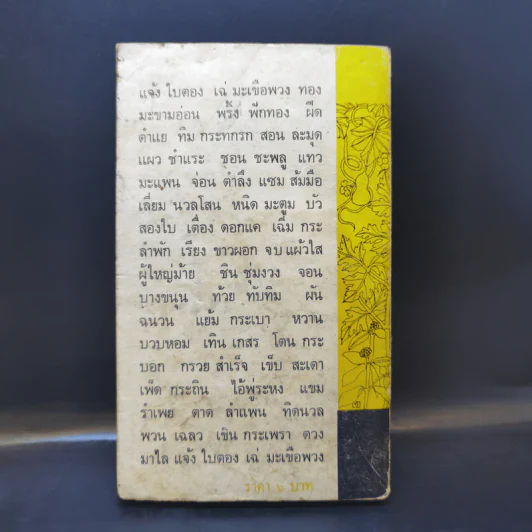 แจ้ง ใบตอง เฉ่ มะเขือพวง ทอง
มะขามอ่อน พริ้ง ฟักทอง ผีด
ตำแย ทิม กระทกรก สอน ละมุด
แผว ชำแระ ชอน ชะพลู แทว
มะแพน จ่อน ตำลึง แซม ส้มมือ
เลี่ยม นวลโสน หนิด มะตูม บัว
สองใบ เตื่อง ดอกแค เฉิ่ม กระ
ลำพัก เรียง ขาวผอก จบ แผ้วใส
ผู้ใหญ่ม้าย ชิน ชุ่มงวง จอน
บางขนุน ท้วย ทับทิม ผัน
ฉนวน แย้ม กระเบา หวาน
บวบหอม เทิน เกสร โตน กระ
บอก กรวย สำเร็จ เข็บ สะเดา
เพ็ด กระถิน ไอ้พู่ระหง แขม
รำเพย ตาด ลำแพน ทิดนวล
พวน เฉลว เขิน กระเพรา ดวง
มาไล แจ้ง ใบตอง เฉ่ มะเขือพวง
ราคา บาท